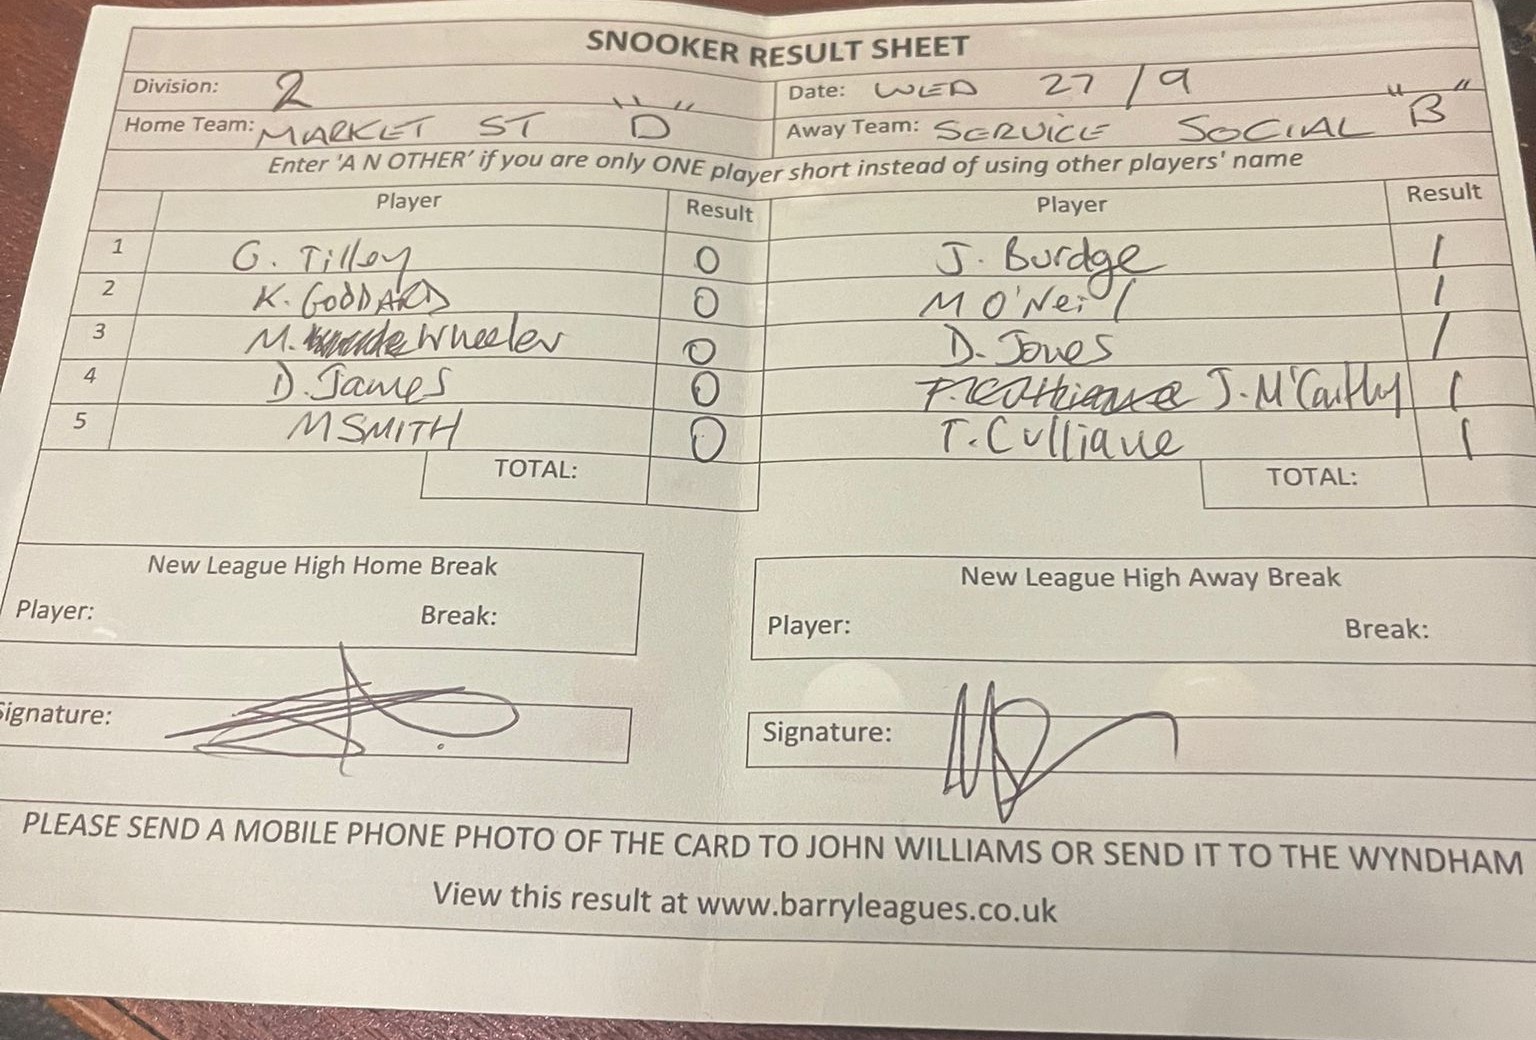 SNOOKER RESULT SHEET
Division: 2 Date: WED 27/9
Home Team: MARKET ST "D" Away Team: SERVICE SOCIAL "B"
Enter 'A N OTHER' if you are only ONE player short instead of using other players' name
Player Result Player Result
1 G. Tilley 0 J. Burdge 1
2 K. GODDARD 0 M O'Neil 1
3 M. Wheeler 0 D. Jones 1
4 D. James 0 J. McCarthy 1
5 M SMITH 0 T. Culliane 1
TOTAL: TOTAL:
New League High Home Break New League High Away Break
Player: Break: Player: Break:
Signature: Signature:
PLEASE SEND A MOBILE PHONE PHOTO OF THE CARD TO JOHN WILLIAMS OR SEND IT TO THE WYNDHAM
View this result at www.barryleagues.co.uk